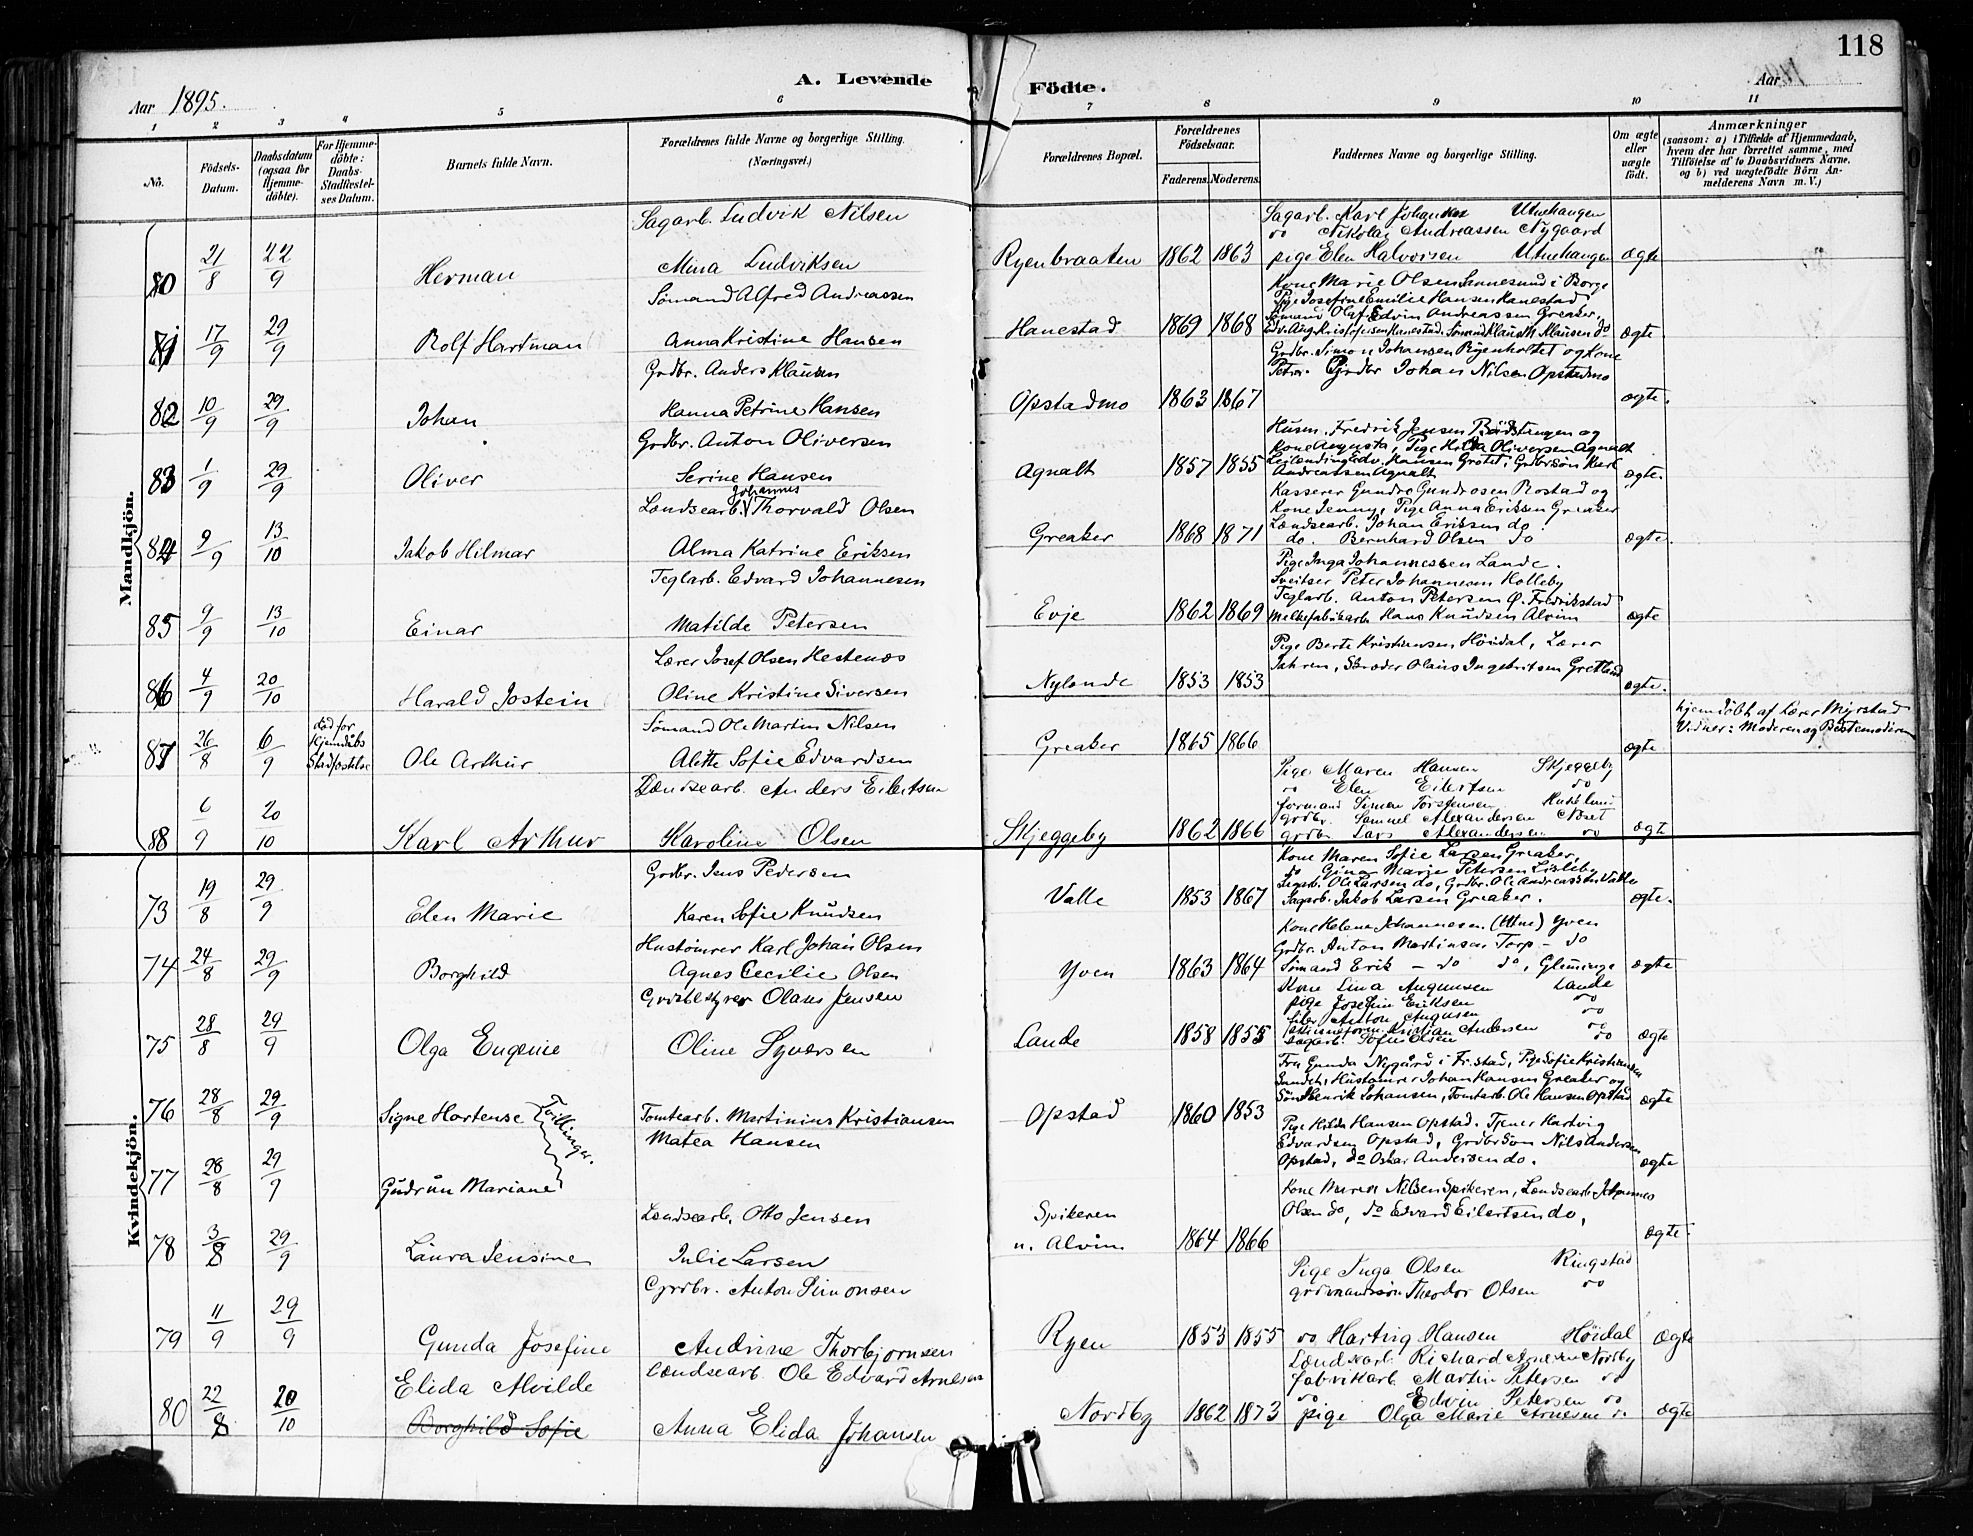 118
A. Levende
Födte.
Aar 1895.
Aar 1895
1 2 3 4 5 6 7 8 9 10 11
No.
Födsels-Datum.
Daabsdatum (ogsaa for Hjemme-döbte).
For Hjemme-döbte: Daabs-Stadfæstel-ses Datum.
Barnets fulde Navn.
Forældrenes fulde Navne og borgerlige Stilling. (Næringsvei.)
Forældrenes Bopæl.
Forældrenes Födselsaar.
Faderens. Moderens.
Faddernes Navne og borgerlige Stilling.
Om ægte eller uægte födt.
Anmærkninger
(saasom: a) i Tilfælde af Hjemmedaab, hvem der har forrettet samme, med Tilföielse af to Daabsvidners Navne, og b) ved uægtefödte Börn An-melderens Navn m. V.)
Mandkjön.
80 21/8 22/9 Herman
Sagarb. Ludvik Nilsen
Mina Ludviksen
Ryenbraaten 1862 1863
Sagarb. Karl Johansen Utnehaugen
do Nikolai Andreassen Nygaard
pige Elen Halvorsen Utnehaugen ægte
81 17/9 29/9 Rolf Hartman
Sömand Alfred Andreassen
Anna Kristine Hansen
Hanestad 1869 1868
Kone Marie Olsen Sannesund i Borge
Pige Josefine Emilie Hansen Hanestad
Sömand Olaf Edvin Andreassen Greaker,
Edv. Aug. Kristofersen Hanestad, Sömand Klaus M. Klausen do ægte
82 10/9 29/9 Johan
Grdbr. Anders Klausen
Hanna Petrine Hansen
Opstadmo 1863 1867
Grdbr. Simon Johansen Ryenholtet og Kone
Petra. Grdbr Johan Nilsen Opstadmo
ægte.
83 1/9 29/9 Oliver
Grdbr. Anton Oliversen
Serine Hansen
Agnalt 1857 1855
Husm. Fredrik Jensen Rödstangen og
Kone Augusta, Pige Hilda Oliversen Agnalt
Leilending Edv. Hansen Grotet, Grdbrsön Karl
Andreassen Agnalt ægte.
84 9/9 13/10 Jakob Hilmar
Johannes
Lændsearb. Thorvald Olsen
Alma Katrine Eriksen
Greaker 1868 1871
Kasserer Gundro Gundrosen Rostad og
Kone Jenny, Pige Anna Eriksen Greaker
Lændsearb. Johan Eriksen do
do. Bernhard Olsen do ægte.
85 9/9 13/10 Einar
Teglarb. Edvard Johannesen
Matilde Petersen
Evje 1862 1869
Pige Inga Johannessen Lande.
Sveitser Peter Johannesen Holleby
Teglarb. Anton Petersen Ø. Fredrikstad
Melkefabrikarb. Hans Knudsen Alvim ægte
86 4/9 20/10 Harald Jostein
Lærer Josef Olsen Hestenæs
Oline Kristine Siversen
Nylende 1853 1853
Pige Berte Kristiansen Höidal, Lærer
Jahren, Skræder Olaus Ingebritsen Gretland
ægte.
87 26/8 6/9 Ole Arthur
Död för Hjemdåbs Stadfæstelse
Sömand Ole Martin Nilsen
Alette Sofie Edvardsen
Greaker 1865 1866 ægte
hjemdöbt af Lærer Myrstad
Vidner: Moderen og Bedstemoderen
88 6/9 20/10 Karl Arthur
Lændsearb. Anders Eilertsen
Karoline Olsen
Skjeggeby 1862 1866
Pige Maren Hansen Skjeggeby
do Elen Eilertsen do
formand Simen Torstensen
grdbr. Samuel Alexandersen Næset
grdbr. Lars Alexandersen do ægte
Kvindekjön.
73 19/8 29/9 Elen Marie
Grdbr. Jens Pedersen
Karen Sofie Knudsen
Valle 1853 1867
Kone Maren Sofie Larsen Greaker,
do Gina Marie Petersen Lisleby
Sagarb. Ole Larsen do, Grdbr. Ole Andreassen Valle
Sagarb. Jakob Larsen Greaker. ægte.
74 24/8 29/9 Borghild
Hustömrer Karl Johan Olsen
Agnes Cecilie Olsen
Yven 1863 1864
Kone Helene Johannesen (Utne) Yven
Grdbr. Anton Martinsen Torp - do
Sömand Erik - do do, Glemminge ægte
75 28/8 29/9 Olga Eugenie
Godsbestyrer Olaus Jensen
Oline Syversen
Lande 1858 1855
Kone Lina Augunsen Lande
pige Josefin Eriksen do
Anton Augusen do
Kristian Andersen do
Sagarb. Tofin Olsen do ægte
76 28/8 29/9 Signe Hortense Tvillinger.
Tomtearb. Martinius Kristiansen
Matea Hansen
Opstad 1860 1853
Fru Gunda Nygård i Fr.stad, Pige Sofie Kristiansen
Sundet, Hustömrer Johan Hansen Greaker og
Sön Henrik Johansen, Tomtarb. Ole Hansen Opstad ægte
77 28/8 29/9 Gudrun Mariane
Pige Hilda Hansen Opstad. Tjener Hartvig
Edvardsen Opstad, Grdbrsön Nils Andersen
Opstad, do Oskar Andersen do. ægte
78 3/8 29/9 Laura Jensine
Lændsearb. Otto Jensen
Julie Larsen
Spikeren
u. Alvim 1864 1866
Kone Maren Nilsen Spikeren, Lændsearb. Johannes
Olsen do, do Edvard Eilertsen do,
ægte.
79 11/9 29/9 Gunda Josefine
Grdbr. Anton Simonsen
Andrine Thorbjörnsen
Ryen 1853 1855
Pige Inga Olsen Ringstad
grdmandssön Theodor Olsen do
do Hartvig Hansen Höidal ægte
80 22/8 20/10 Elida Alvilde
Borghild Sofie
Lændsearb. Ole Edvard Arnesen
Anna Elida Johansen
Nordby 1862 1873
Lændsearb. Richard Arnesen Nordby
fabrikarb. Martin Petersen do
do Edvin Petersen do
pige Olga Marie Arnesen do ægte